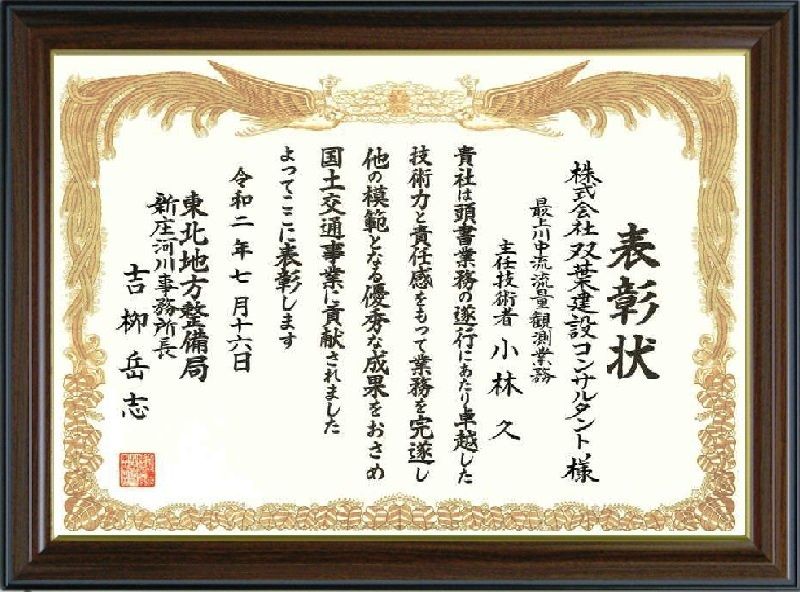 表彰状
株式会社双葉建設コンサルタント様
最上川中流流量観測業務
主任技術者 小林久
貴社は頭書業務の遂行にあたり卓越した
技術力と責任感をもって業務を完遂し
他の模範となる優秀な成果をおさめ
国土交通事業に貢献されました
よってここに表彰します
令和二年七月十六日
東北地方整備局
新庄河川事務所長
吉柳岳志